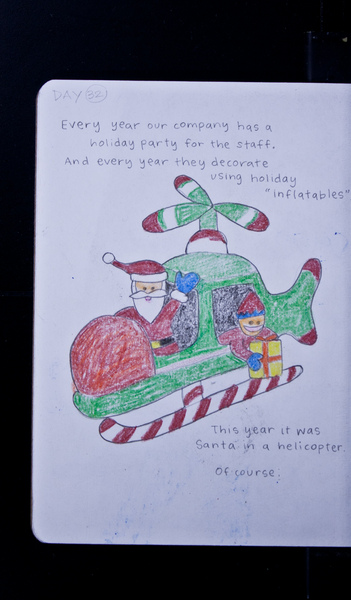 DAY 32
Every year our company has a
holiday party for the staff.
And every year they decorate
using holiday
"inflatables"
This year it was
Santa in a helicopter.
Of course.